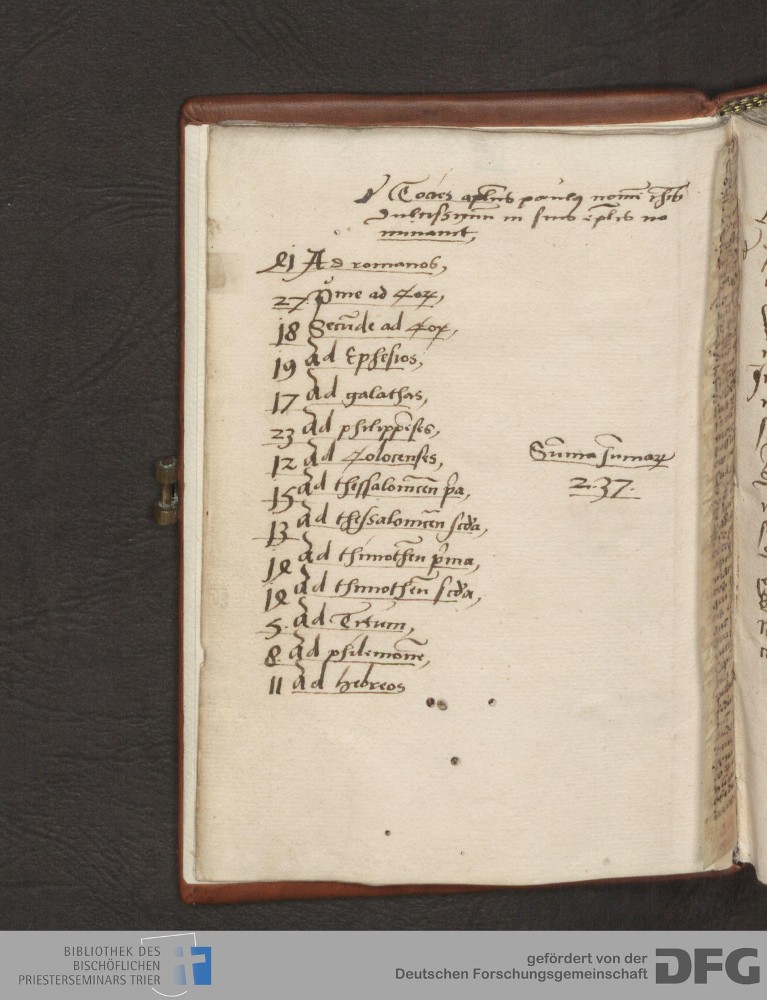 Tocies apl̄us paulus nomē ih̄s
dulcissimū in suis ep̄lis no
minauit,
Ad romanos,
27 p̄me ad Cor,
18 Secūde ad Cor,
19 Ad Ephesios,
17 Ad galathas,
23 Ad philippēses,
12 Ad Colocenses,
Sūma sūmaꝝ
237.
15 Ad thessalonicen p̄a,
13 Ad thessalonicen scd̄a,
Ad thimotheū p̄ma,
Ad thimotheū scd̄a,
5 Ad Titum,
8 Ad philemonē,
11 Ad hebreos
BIBLIOTHEK DES
BISCHÖFLICHEN
PRIESTERSEMINARS TRIER
gefördert von der
Deutschen Forschungsgemeinschaft DFG